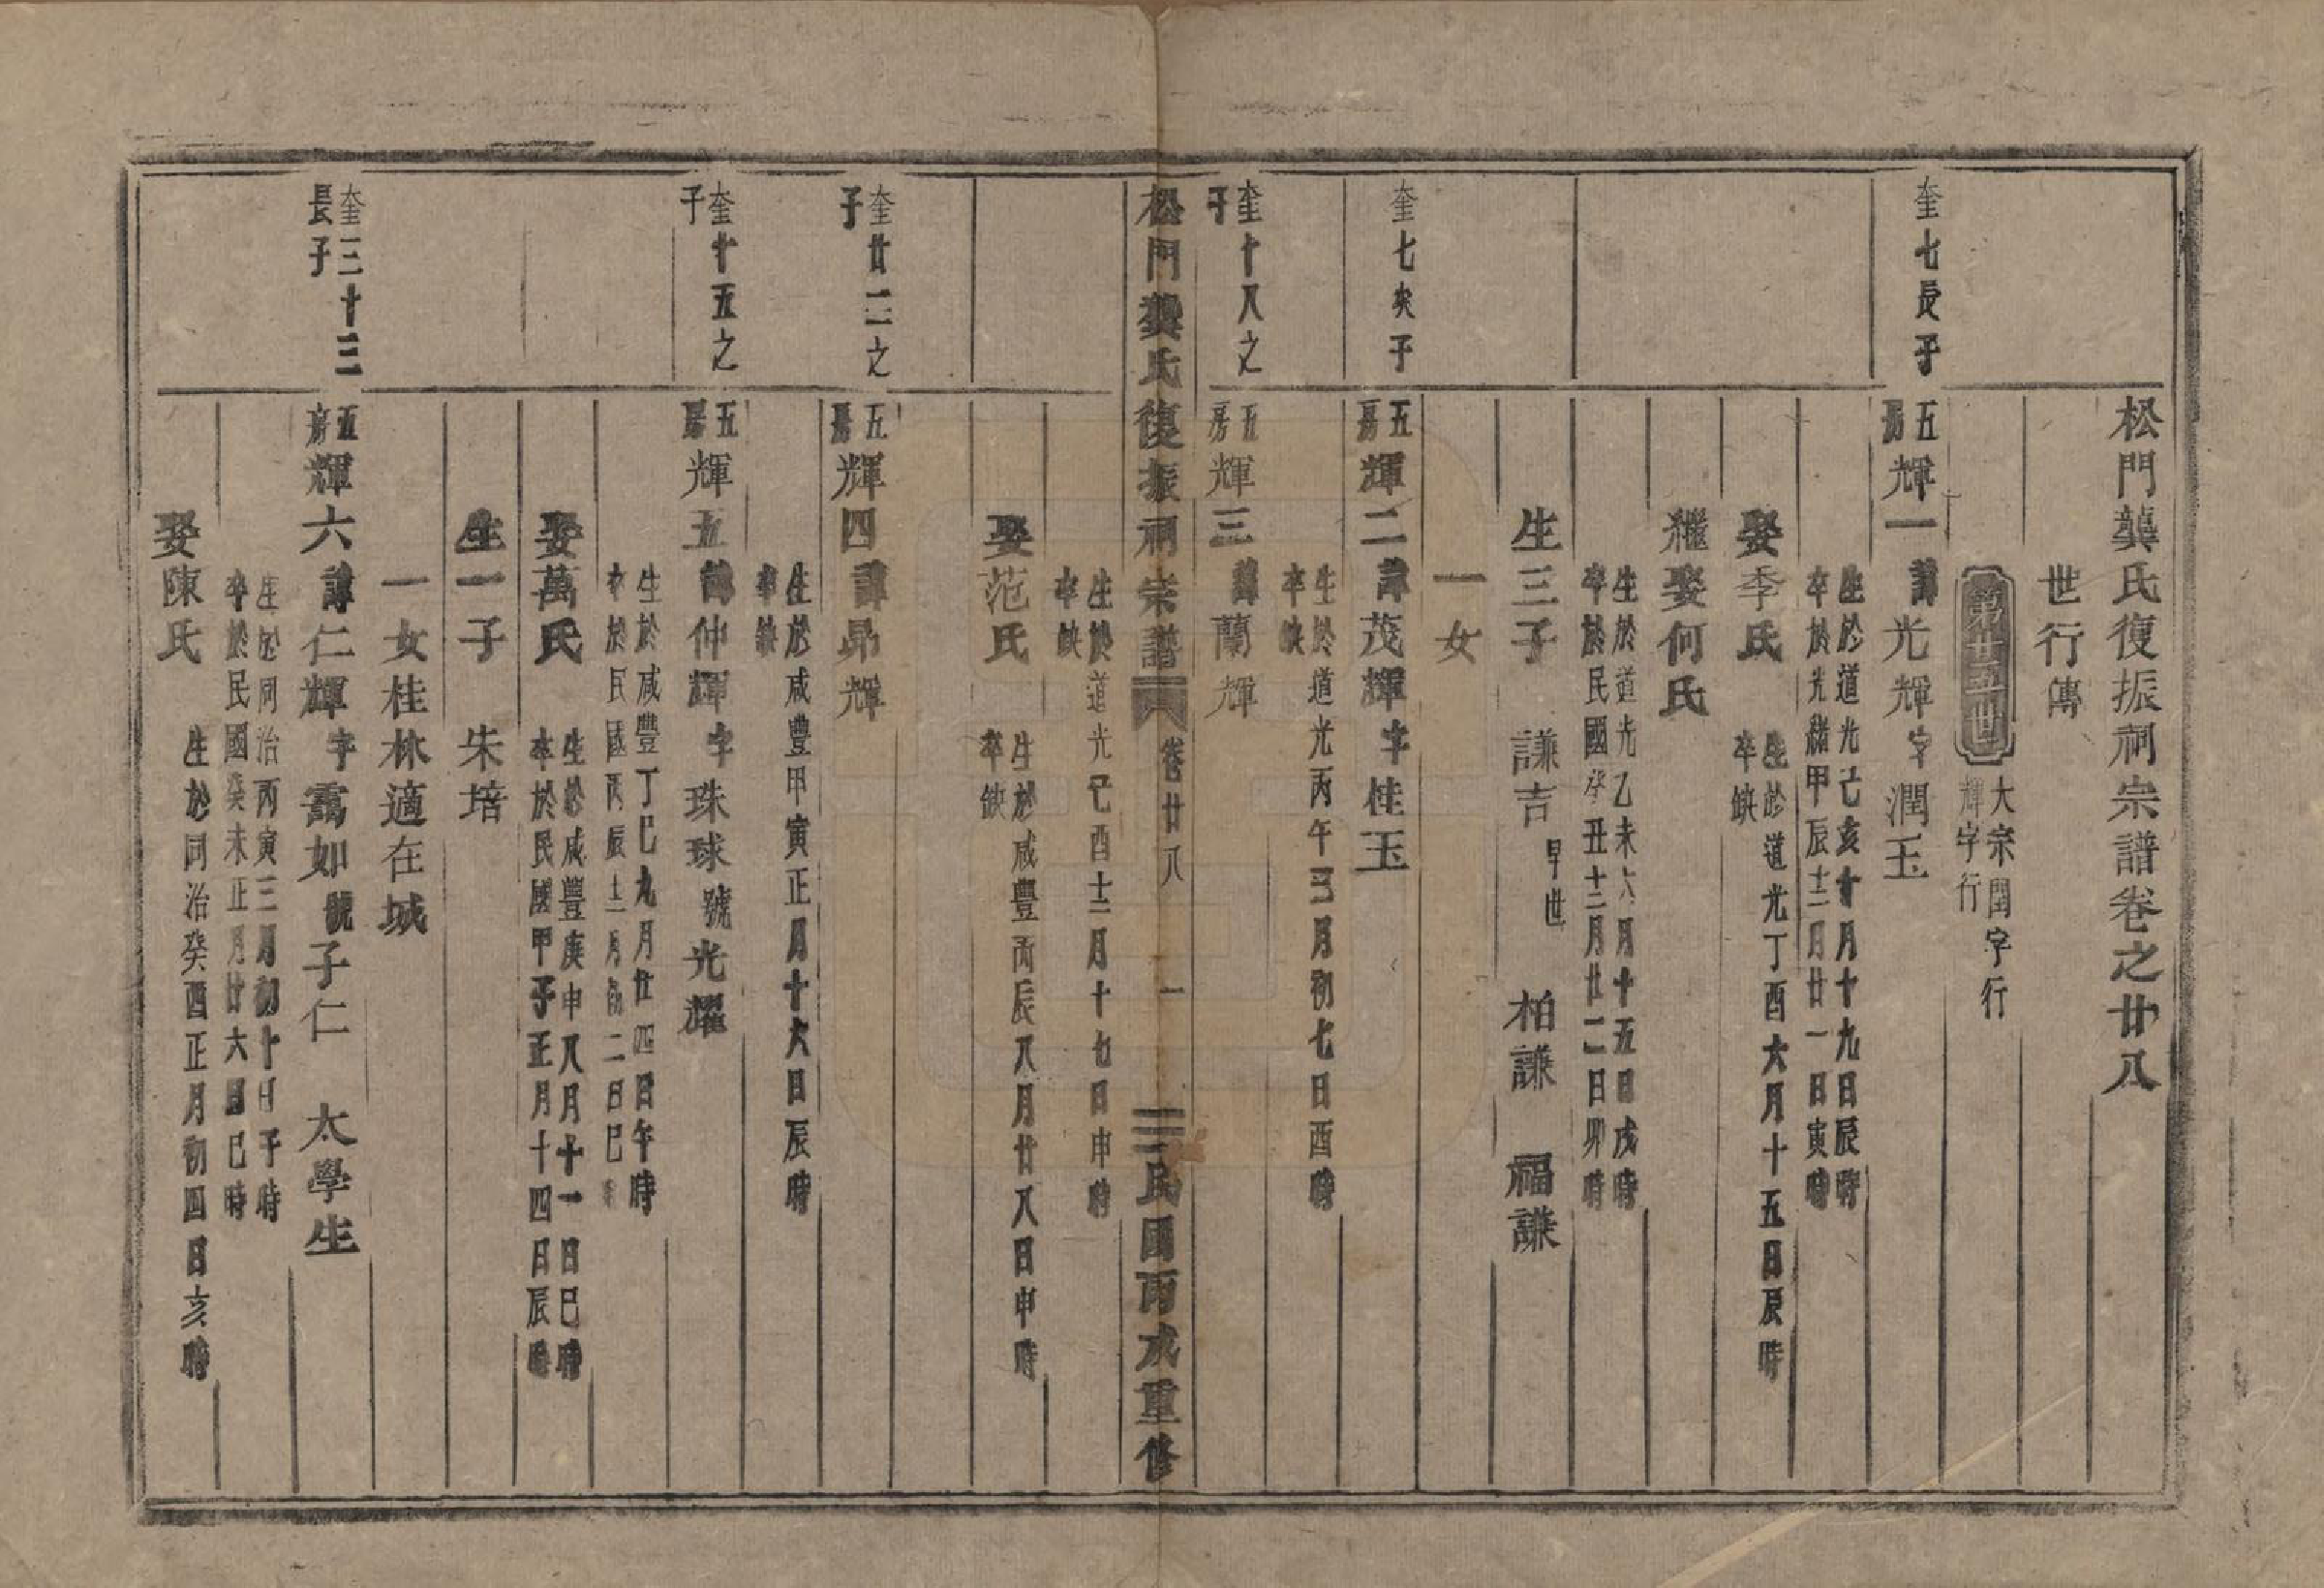 松門龔氏復振祠宗譜卷之廿八
世行傳
第廿五世
大宗閏字行
輝字行
奎七長子
五房輝一諱光輝字潤玉
生於道光己亥十月十九日辰時
卒於光緒甲辰十二月廿一日寅時
娶季氏
生於道光丁酉六月十五日辰時
卒缺
繼娶何氏
生於道光乙未六月十五日戌時
卒於民國癸丑十二月廿二日卯時
生三子 謙吉早世 柏謙 福謙
一女
奎七次子
五房輝二諱茂輝字桂玉
生於道光丙午三月初七日酉時
卒缺
奎十八之子
五房輝三諱蘭輝
松門龔氏復振祠宗譜 卷廿八 一 民國丙戌重修
生於道光己酉十二月十七日申時
卒缺
娶范氏
生於咸豐丙辰八月廿八日申時
卒缺
奎廿二之子
五房輝四諱昴輝
生於咸豐甲寅正月十六日辰時
卒缺
奎十五之子
五房輝五諱仲輝字珠球號光耀
生於咸豐丁巳九月廿四日午時
卒於民國丙辰十二月初二日巳時
娶萬氏
生於咸豐庚申八月十一日巳時
卒於民國甲子正月十四日辰時
生一子 朱培
一女桂林適在城
奎三十三長子
五房輝六諱仁輝字靄如號子仁 太學生
生於同治丙寅三月初十日子時
卒於民國癸未正月廿六日巳時
娶陳氏
生於同治癸酉正月初四日亥時